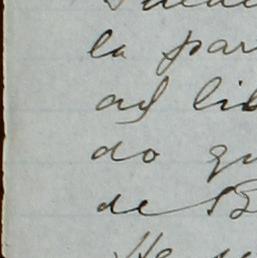 la par
al lib
do qu
de B
He se